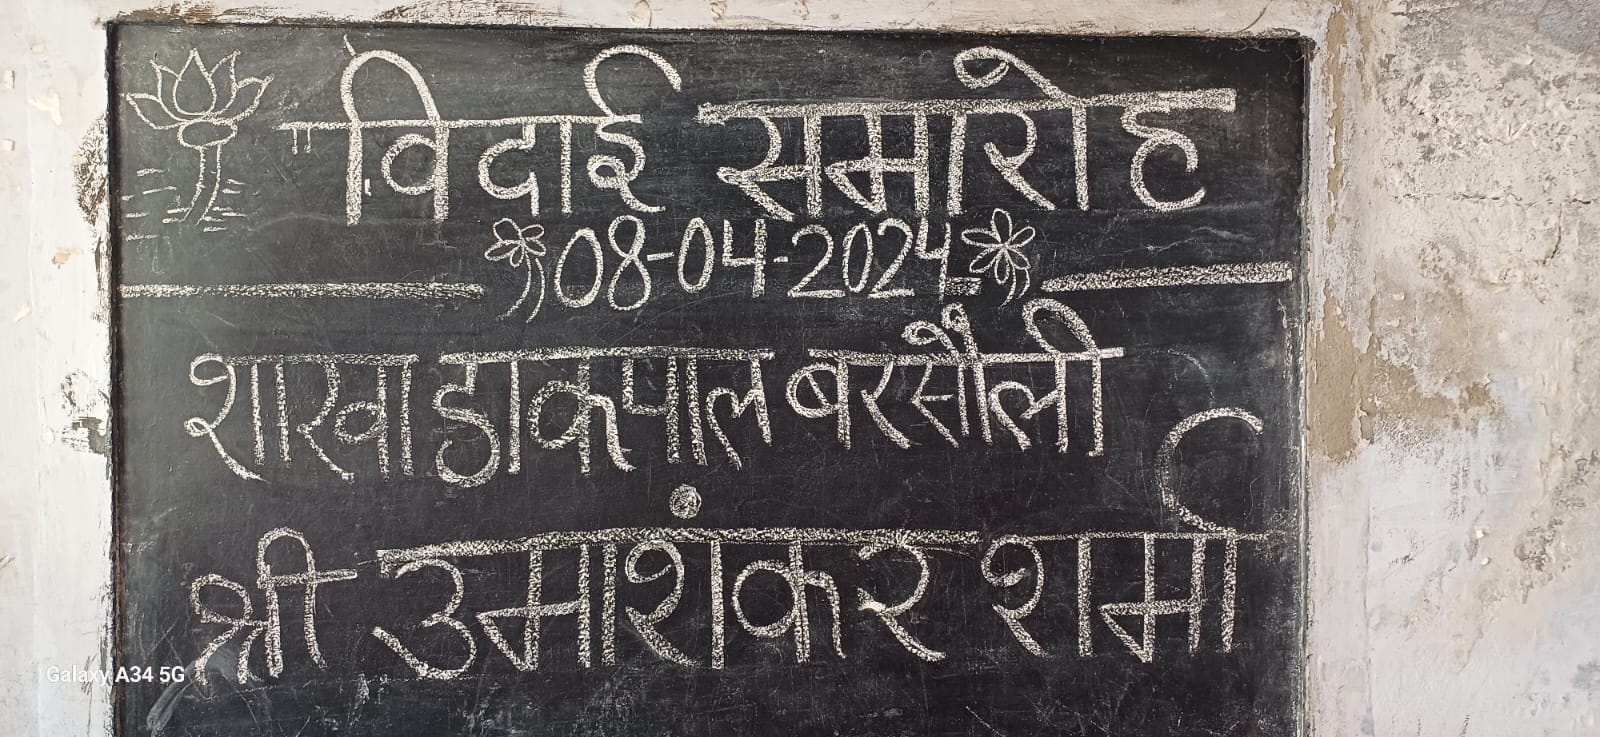 "विदाई समारोह
08-04-2024
शाखा डाकपाल बरसौली
श्री उमाशंकर शर्मा
Galaxy A34 5G